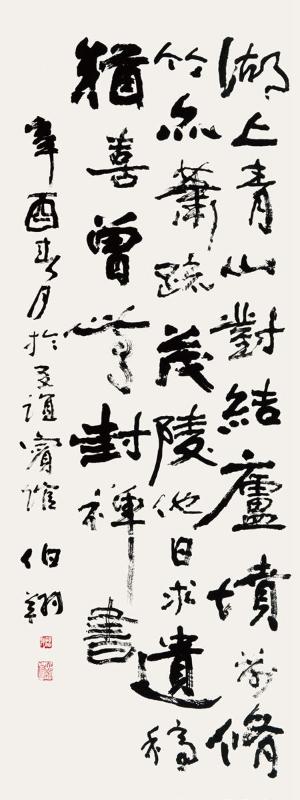 湖上青山對結廬墳前脩
竹亦蕭疏茂陵他日求遺稿
猶喜曾無封禪書
辛酉春月於友誼賓館伯翔